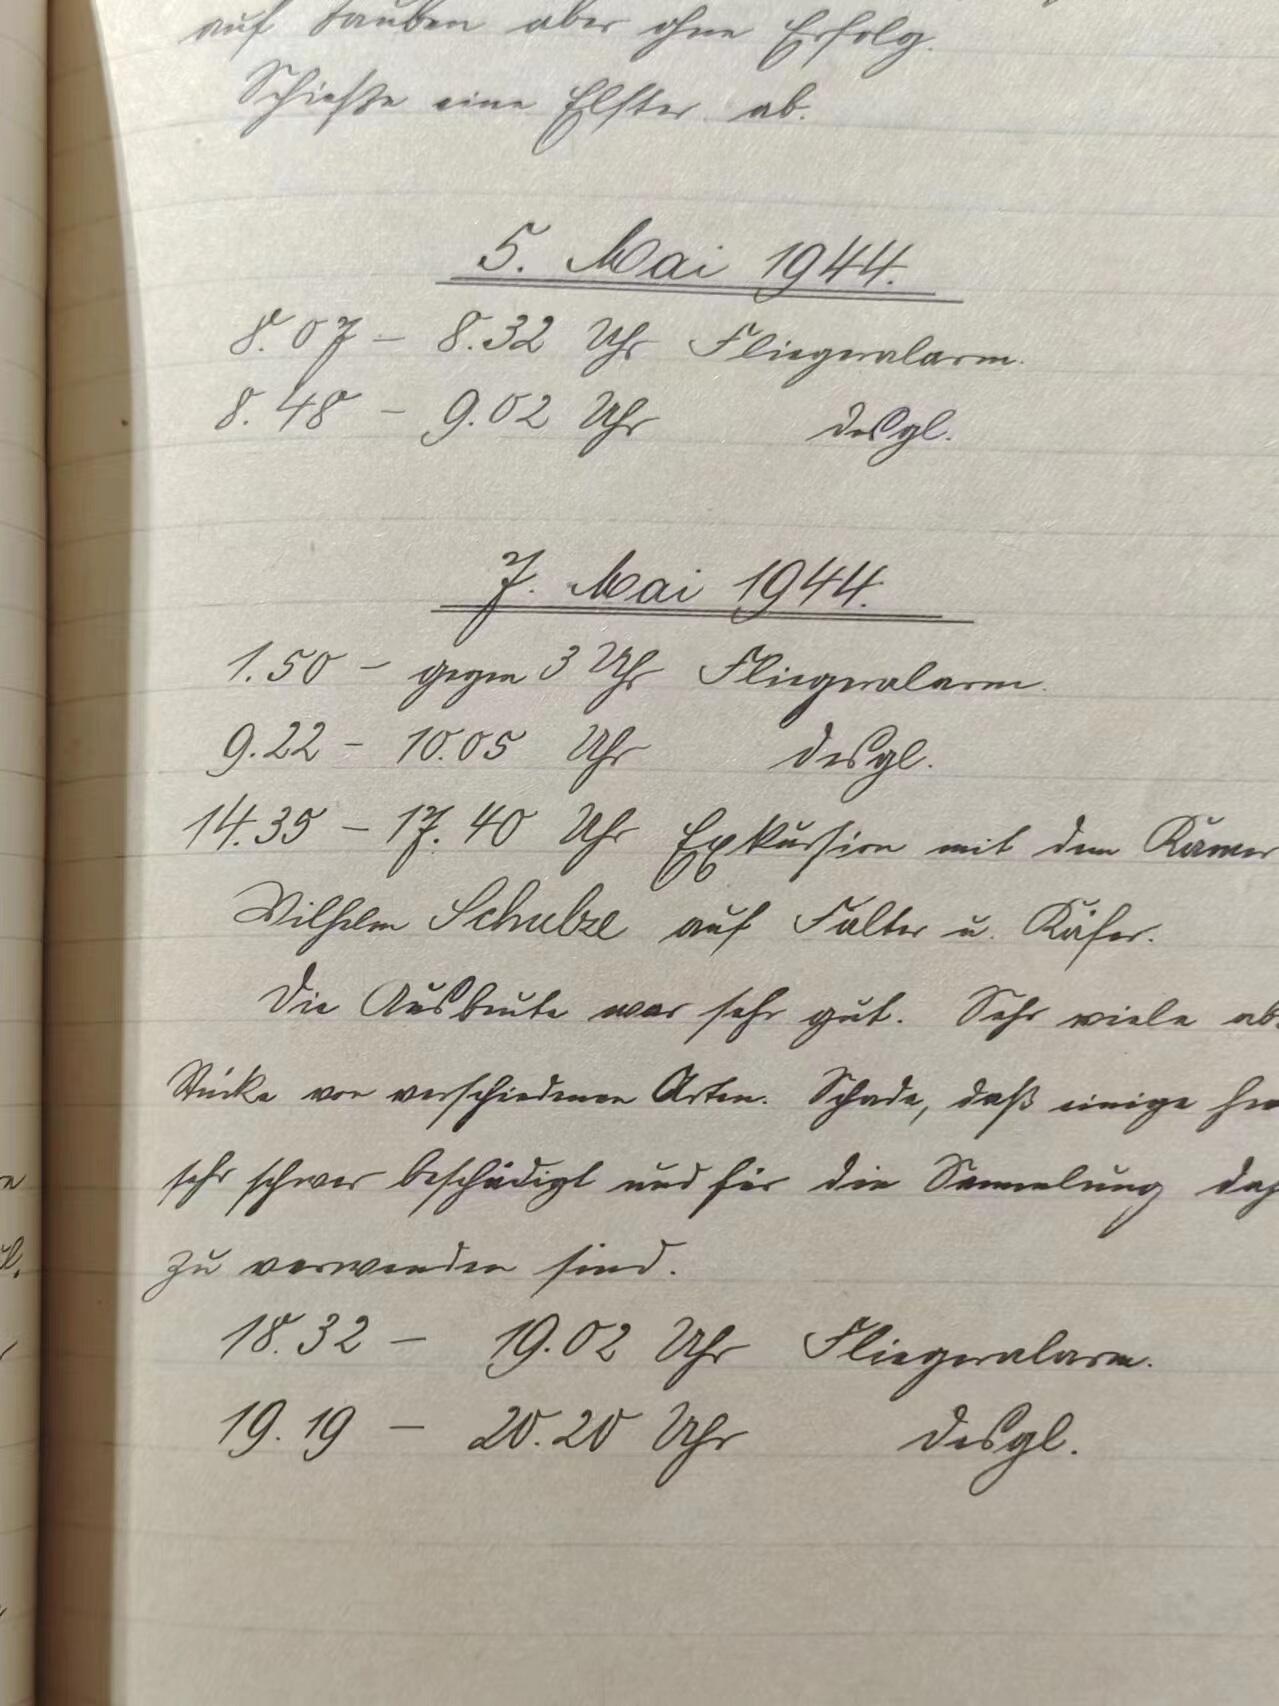 auf Tauben aber ohne Erfolg.
Schieße eine Elster ab.
5. Mai 1944.
8.07 – 8.32 Uhr Fliegeralarm.
8.48 – 9.02 Uhr desgl.
7. Mai 1944.
1.50 – gegen 3 Uhr Fliegeralarm.
9.22 – 10.05 Uhr desgl.
14.35 – 17.40 Uhr Exkursion mit dem
Wilhelm Schulze auf Falter u. Käfer.
Die Ausbeute war sehr gut. Sehr viele
Stücke von verschiedenen Arten. Schade, daß einige
sehr schwer beschädigt und für die Sammlung
zu verwenden sind.
18.32 – 19.02 Uhr Fliegeralarm.
19.19 – 20.20 Uhr desgl.